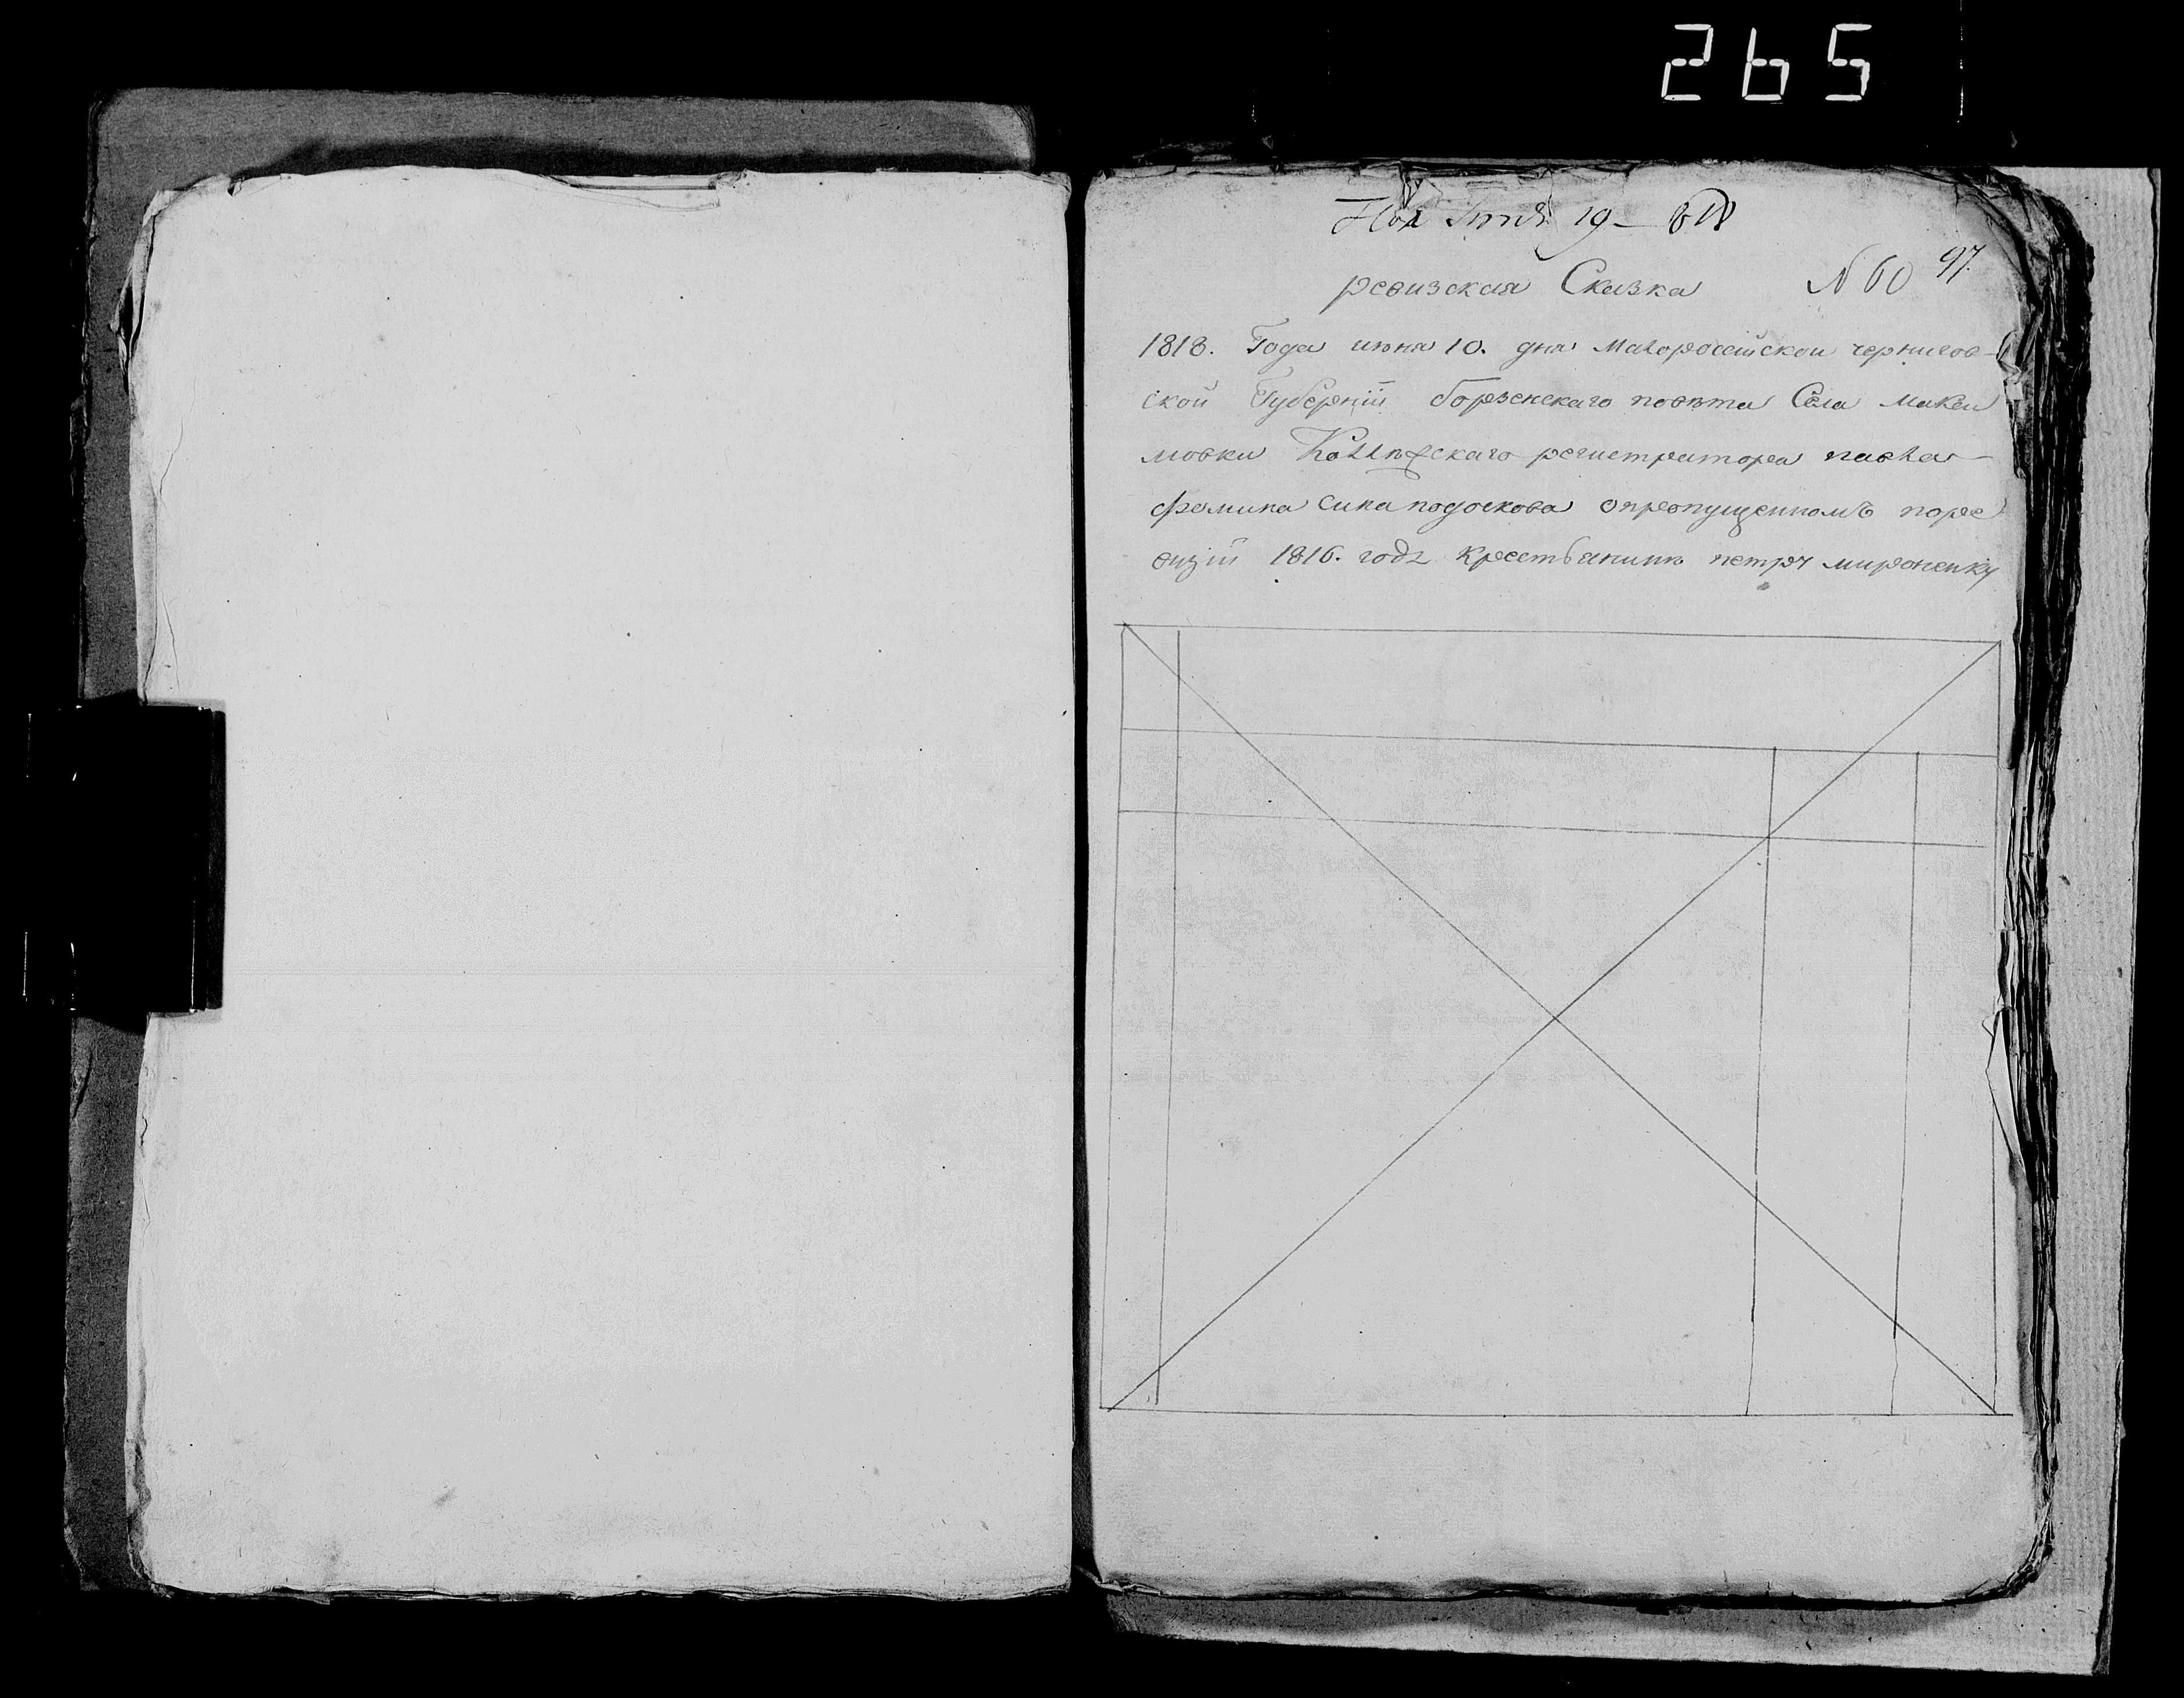 265
19 —
ревизская Сказка N 60 97.
1818. Года июня 10. дня Малоросейской чернигов-
ской Губерніи борзенскаго повѣта Села Макси
мовки Коллѣжскаго регистратора павла
фомина сина подоскова опропущенномъ поре
визіи 1816. года крестьянинѣ петру мироненку